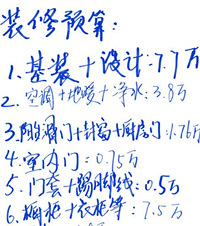 装修预算:
1.基装+设计:7.7万
2.空调+地暖+净水:3.8万
3.阳台门+封窗+厨房门:1.76万
4.室内门:0.75万
5.门套+踢脚线:0.5万
6.橱柜+衣柜等:7.5万